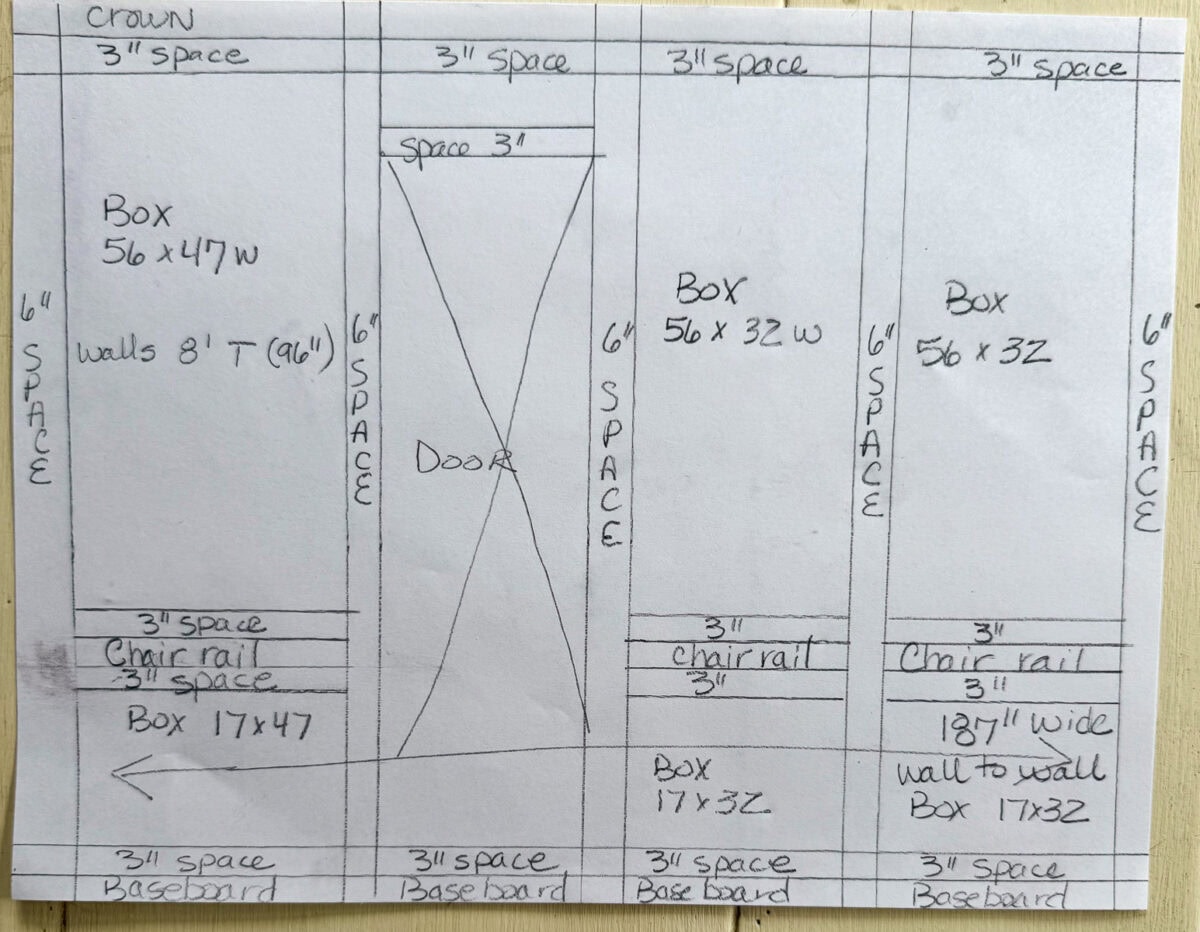 Crown
3" space
3" space
3" space
3" space
Space 3"
Box
56 x 47 w
walls 8' T (96")
6" SPACE
6" SPACE
Door
6" SPACE
Box
56 x 32 w
6" SPACE
Box
56 x 32
6" SPACE
3" space
Chair rail
3" space
Box 17x47
3"
chair rail
3"
Box
17x32
3"
Chair rail
3"
187" wide
wall to wall
Box 17x32
3" space
3" space
3" space
3" space
Baseboard
Baseboard
Baseboard
Baseboard